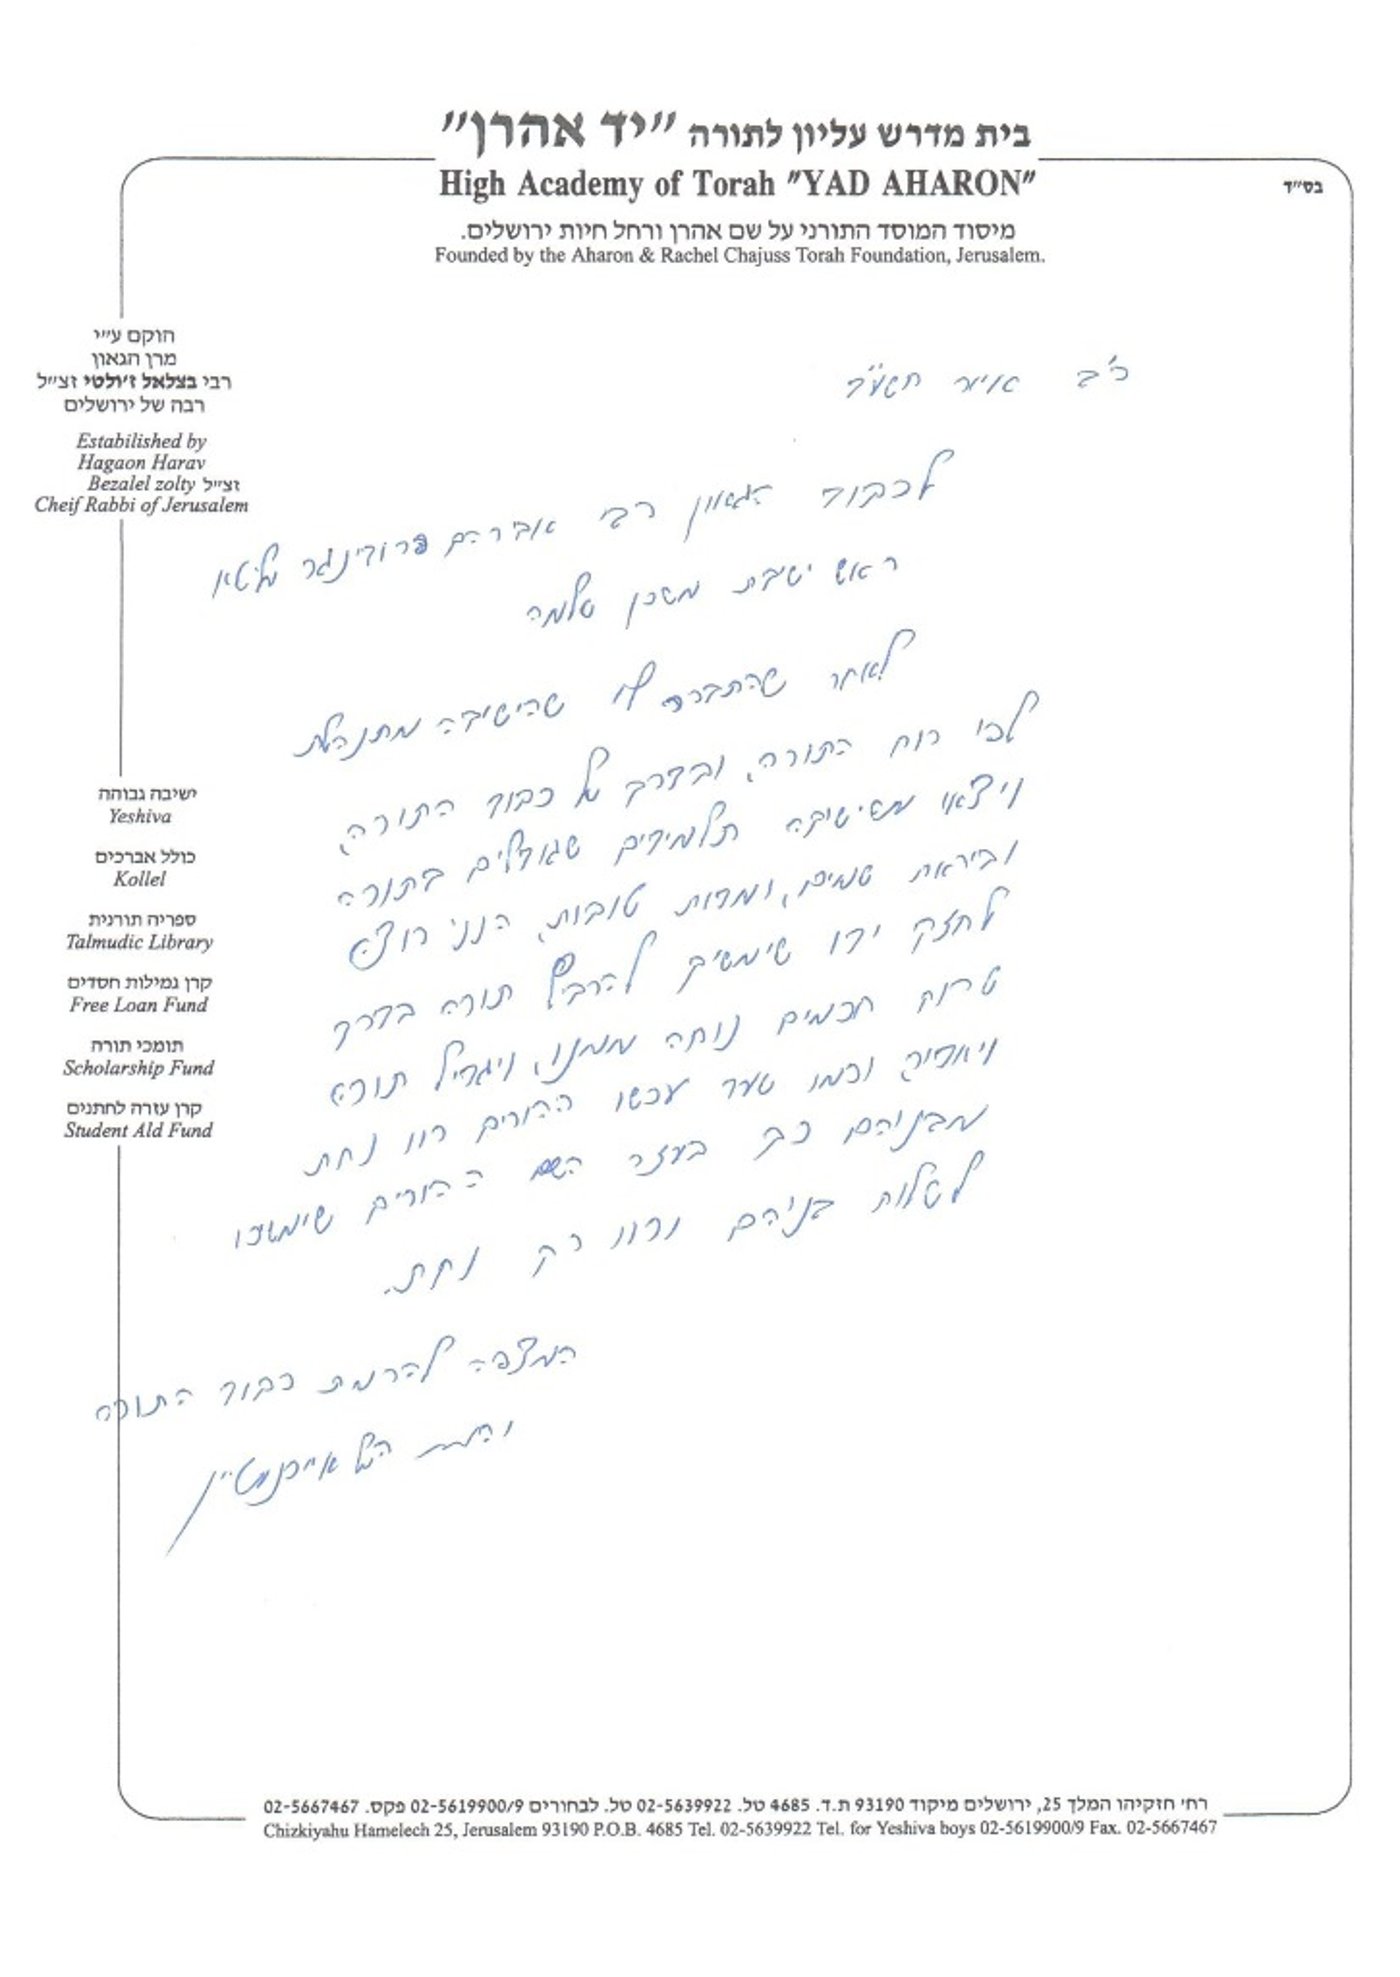 בס״ד
בית מדרש עליון לתורה ״יד אהרן״
High Academy of Torah "YAD AHARON"
מיסוד המוסד התורני על שם אהרן ורחל חיות ירושלים.
Founded by the Aharon & Rachel Chajuss Torah Foundation, Jerusalem.
הוקם ע״י
מרן הגאון
רבי בצלאל ז׳ולטי זצ״ל
רבה של ירושלים
Estabilished by
Hagaon Harav
Bezalel zolty זצ״ל
Cheif Rabbi of Jerusalem
ישיבה גבוהה
Yeshiva
כולל אברכים
Kollel
ספריה תורנית
Talmudic Library
קרן גמילות חסדים
Free Loan Fund
תומכי תורה
Scholarship Fund
קרן עזרה לחתנים
Student Ald Fund
כ״ב אייר תשע״ד
לכבוד הגאון רבי אברהם פרודינגר שליטא
ראש ישיבת משכן שלמה
לאחר שהתברר לי שהישיבה מתנהלת
לפי רוח התורה, ובדרך של כבוד התורה,
ויצאו מהישיבה תלמידים שגודלים בתורה
וביראת שמים, ומדות טובות, הנני רוצה
לחזק ידו שימשיך להרביץ תורה בדרך
שרוח חכמים נוחה ממנו, ויגדיל תורה
ויאדיר, וכמו שעד עכשו ההורים רוו נחת
מבניהם כך בעזר השם ההורים שימשכו
לשלוח בניהם ירוו רק נחת.
המצפה להרמת כבוד התורה
רח׳ חזקיהו המלך 25, ירושלים מיקוד 93190 ת.ד. 4685 טל. 02-5639922 טל. לבחורים 02-5619900/9 פקס. 02-5667467
Chizkiyahu Hamelech 25, Jerusalem 93190 P.O.B. 4685 Tel. 02-5639922 Tel. for Yeshiva boys 02-5619900/9 Fax. 02-5667467